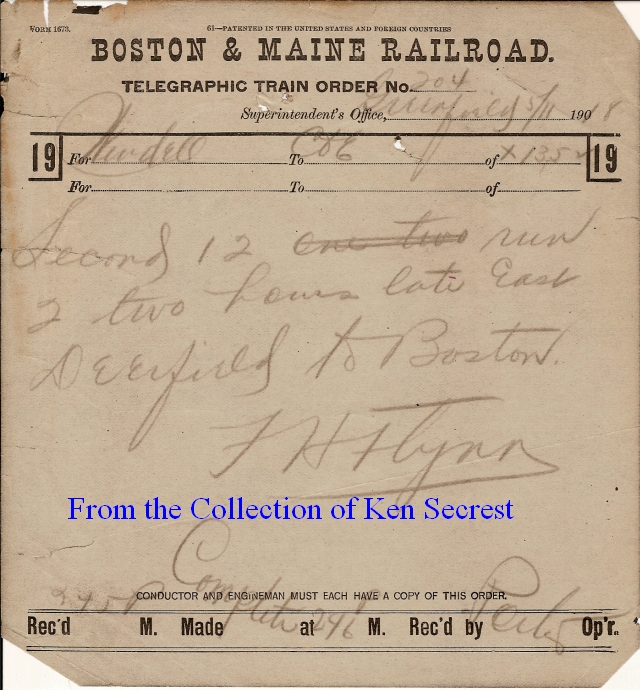 FORM 1673.
61—PATENTED IN THE UNITED STATES AND FOREIGN COUNTRIES
BOSTON & MAINE RAILROAD.
TELEGRAPHIC TRAIN ORDER No. 204
Superintendent's Office, Greenfield 5/11 190 18
19 For Wendell To C&E of X 1352 19
For To of
Second 12 one two run
2 two hours late East
Deerfield to Boston.
F H Flynn
From the Collection of Ken Secrest
CONDUCTOR AND ENGINEMAN MUST EACH HAVE A COPY OF THIS ORDER.
Rec'd 245 P M. Made Complete at 246 M. Rec'd by Op'r.